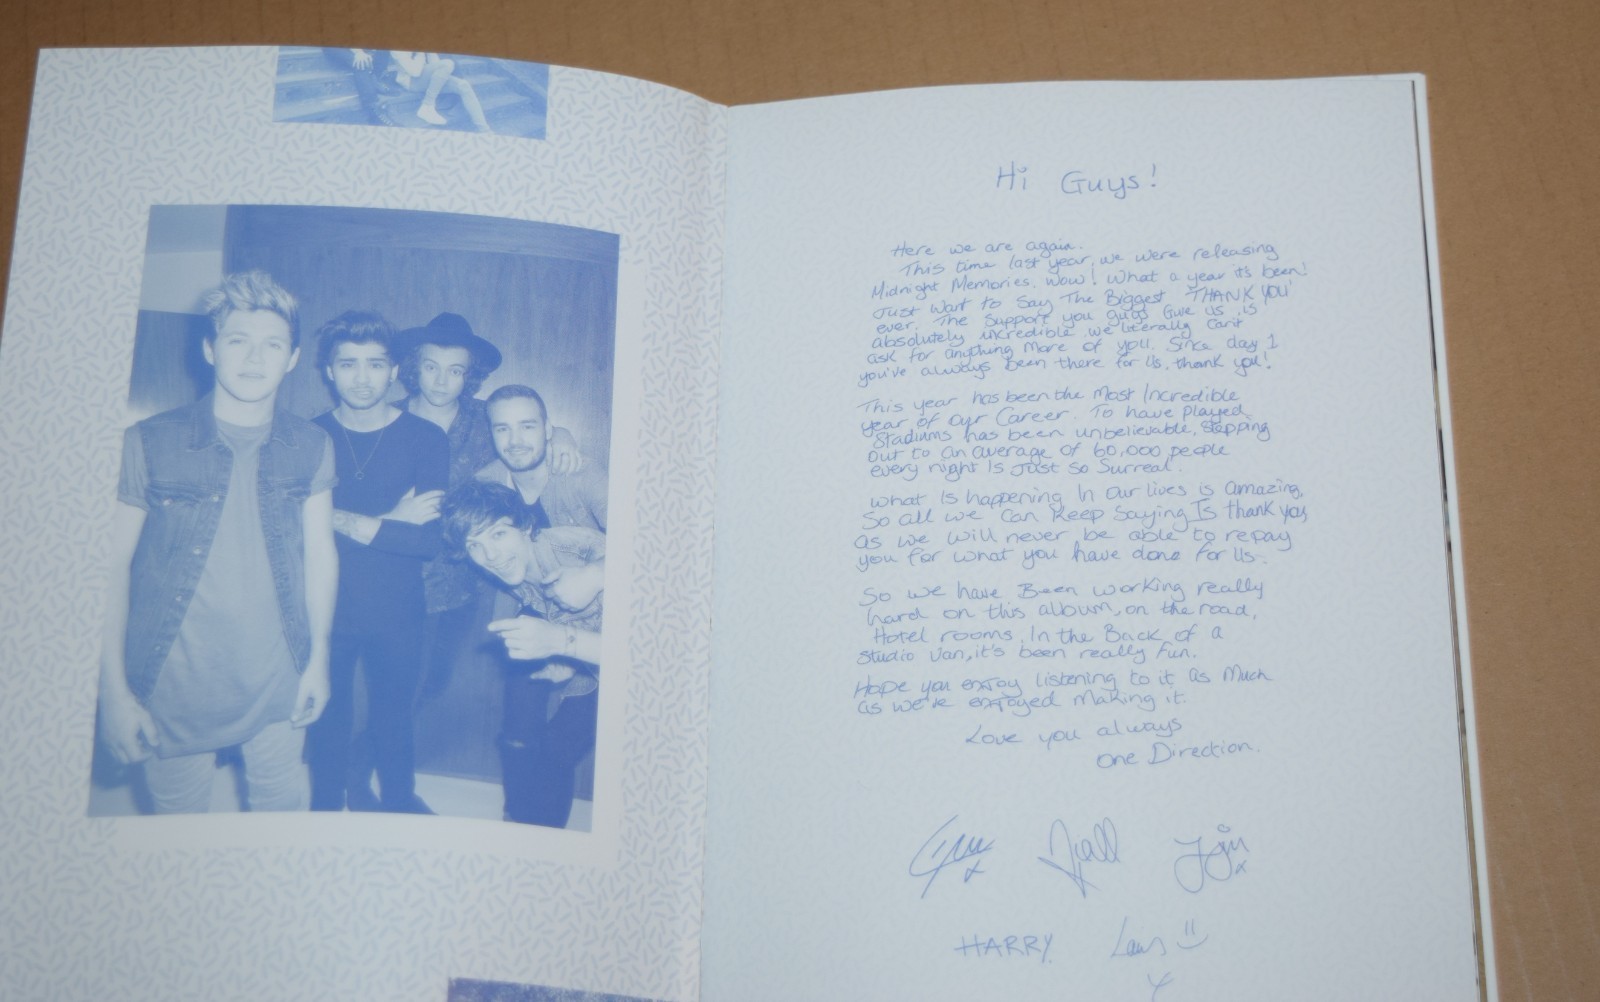 Hi Guys!
Here we are again.
This time last year, we were releasing
Midnight Memories. Wow! What a year it's been!
Just want to say The Biggest 'THANK YOU'
ever. The Support you guys Give us is
absolutely incredible we literally can't
ask for anything more of you. Since day 1
you've always been there for Us, thank you!
This year has been the Most Incredible
year of our Career. To have played
Stadiums has been unbelievable. Stepping
out to an average of 60,000 people
every night Is Just So Surreal.
What Is happening In Our lives is amazing,
So all we Can Keep Saying Is thank you,
as we will never be able to repay
you for what you have done for Us.
So we have Been working really
hard on this album, on the road,
Hotel rooms, In the Back of a
Studio Van, it's been really fun.
Hope you enjoy listening to it as Much
as we've enjoyed Making it.
Love you always
One Direction.
Niall
HARRY